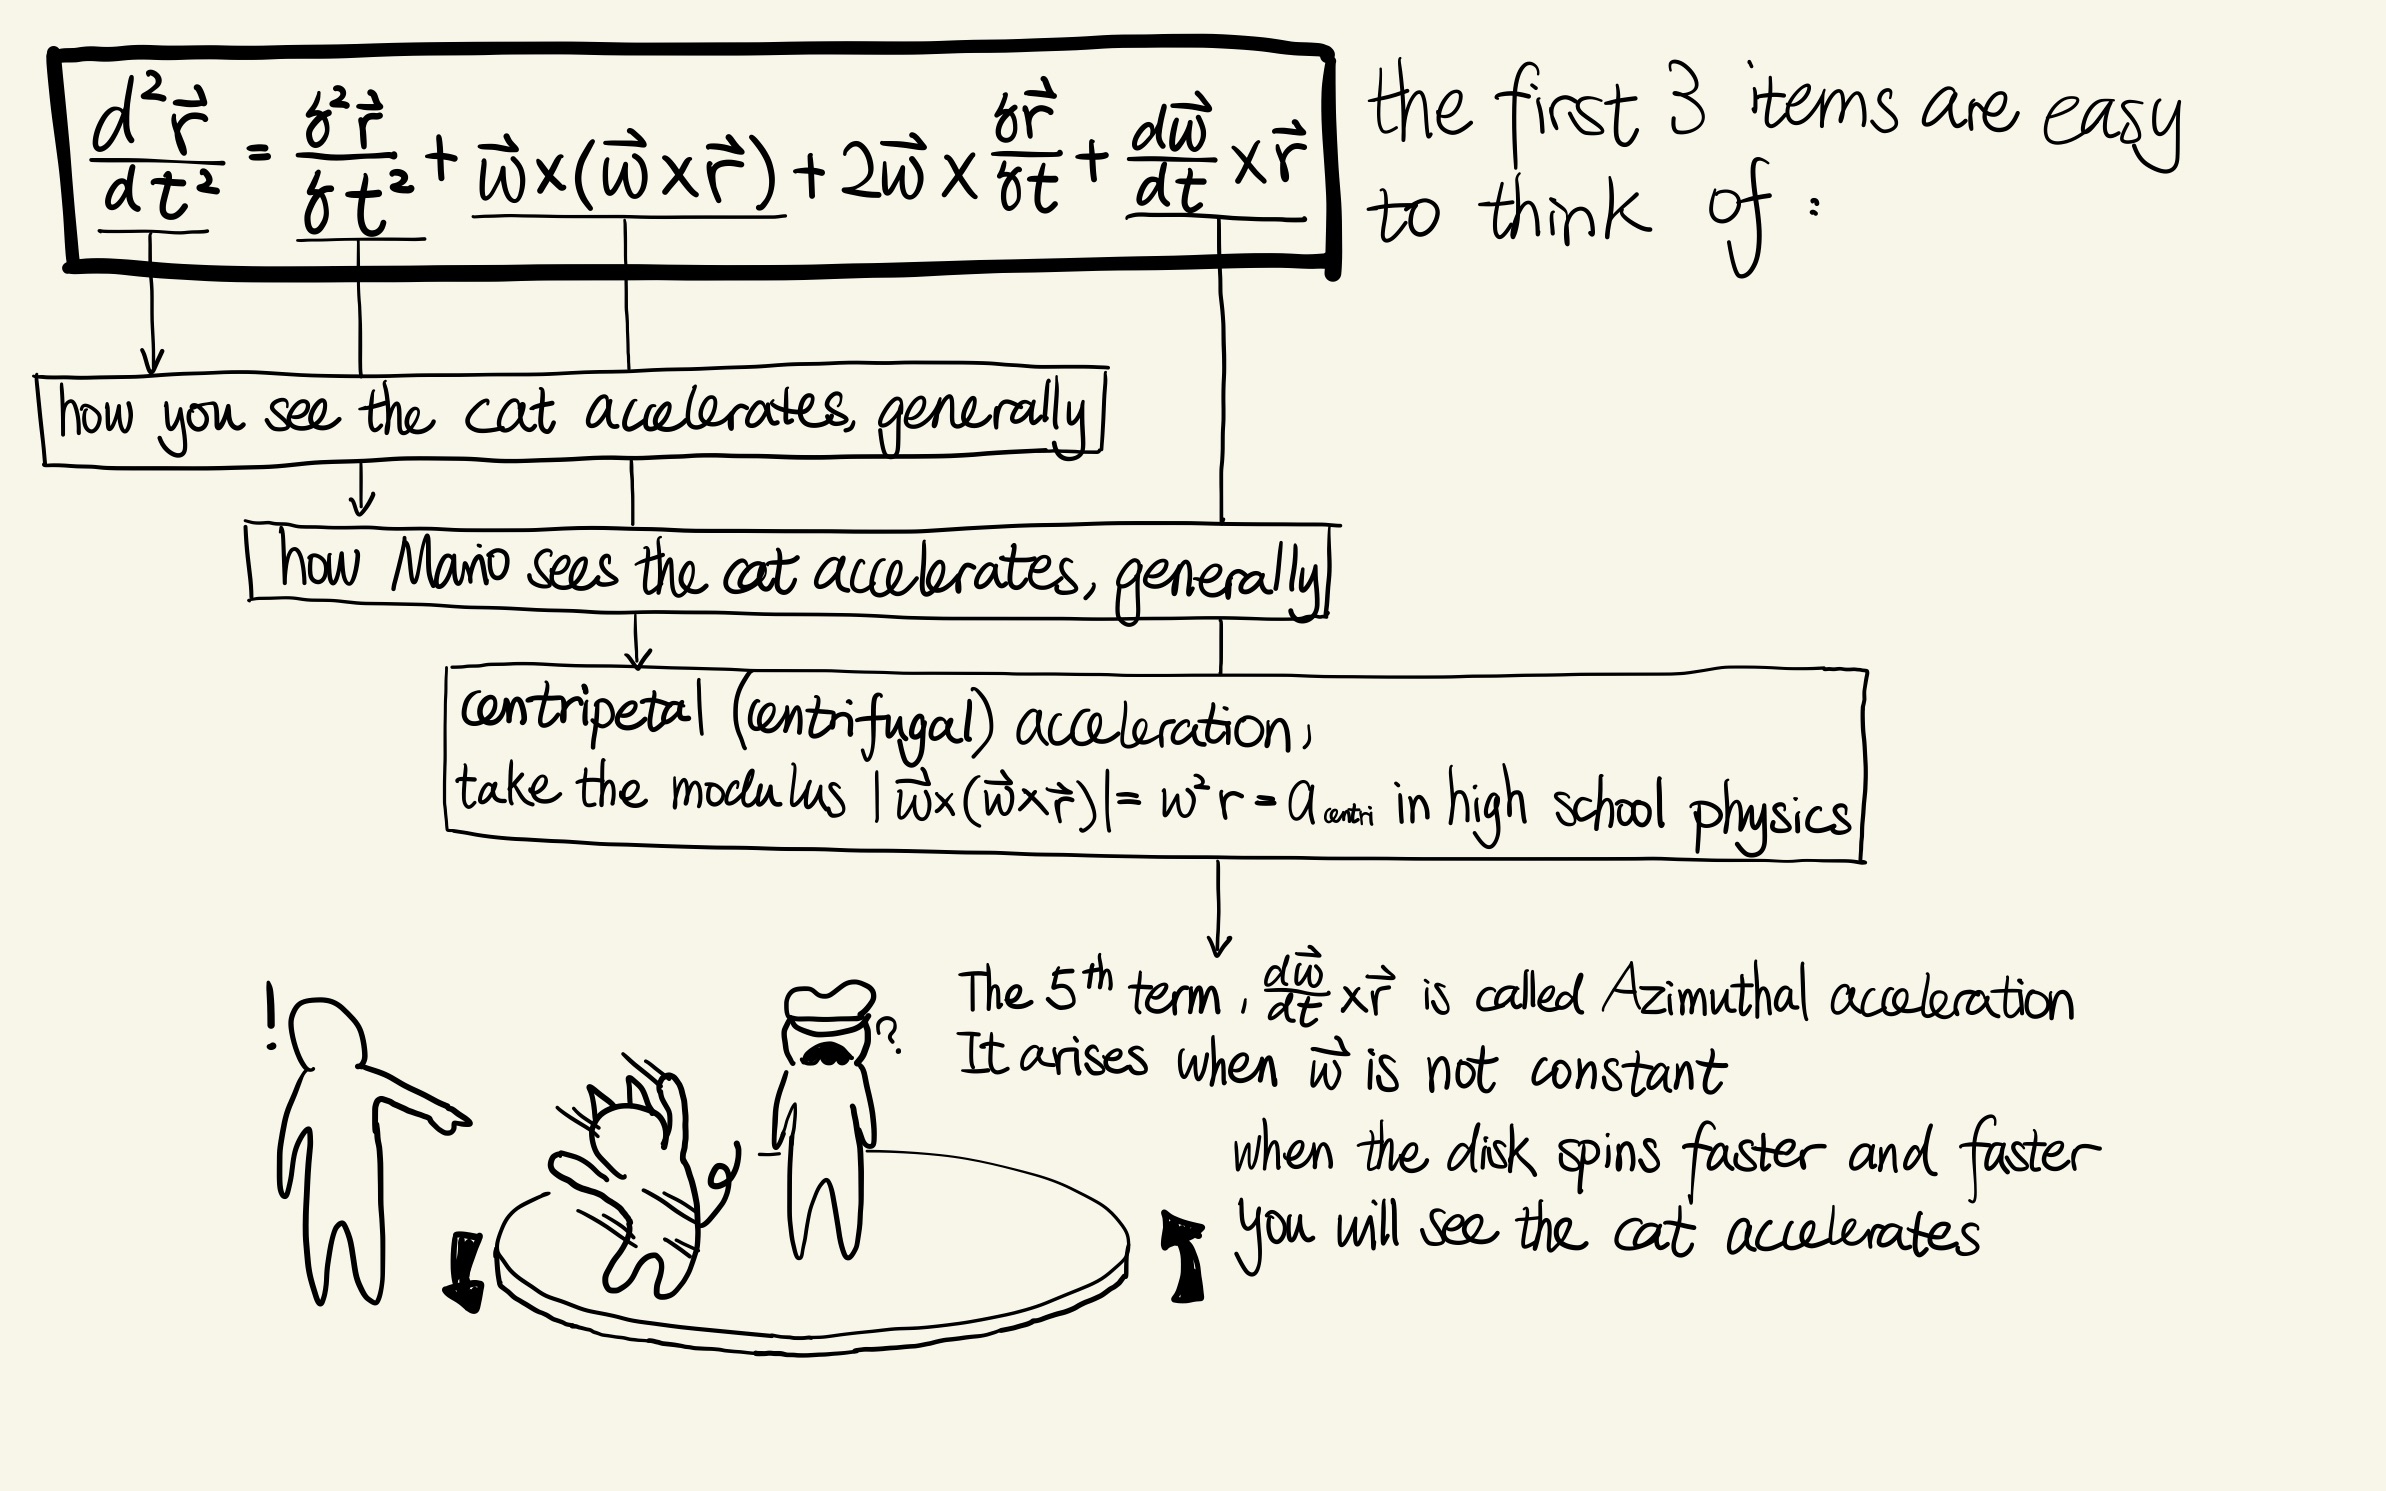 d²r⃗/dt² = δ²r⃗/δt² + w⃗×(w⃗×r⃗) + 2w⃗×δr⃗/δt + dw⃗/dt ×r⃗
the first 3 items are easy
to think of :
how you see the cat accelerates, generally
how Mario sees the cat accelerates, generally
centripetal (centrifugal) acceleration,
take the modulus |w⃗×(w⃗×r⃗)| = w²r = a centri in high school physics
The 5th term, dw⃗/dt ×r⃗ is called Azimuthal acceleration
It arises when w⃗ is not constant
when the disk spins faster and faster
you will see the cat accelerates
!
?